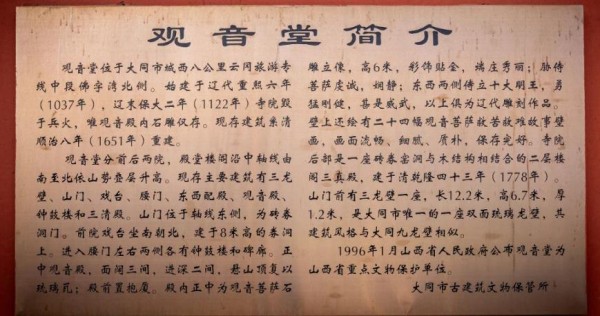 观音堂简介
观音堂位于大同市城西八公里云冈旅游专
线中段佛字湾北侧。始建于辽代重熙六年
（1037年），辽末保大二年（1122年）寺院毁
于兵火，唯观音殿内石雕仅存。现存建筑系清
顺治八年（1651年）重建。
观音堂分前后两院，殿堂楼阁沿中轴线由
南至北依山势叠层升高。现存主要建筑有三龙
壁、山门、戏台、腰门、东西配殿、观音殿、
钟鼓楼和三清殿。山门位于轴线东侧，为砖券
洞门。前院戏台坐南朝北，建于8米高的券洞
上。进入腰门左右两侧各有钟鼓楼和碑廊。正
中观音殿，面阔三间，进深二间，悬山顶复以
琉璃瓦；殿前置抱厦。殿内正中为观音菩萨石
雕立像，高6米，彩饰贴金，端庄秀丽；胁侍
菩萨虔诚，娴静；东西两侧侍立十大明王，勇
猛刚健，甚是威武，以上俱为辽代雕刻作品。
壁上还绘有二十四幅观音菩萨救苦救难故事壁
画，画面流畅、细腻、质朴，保存完好。寺院
后部是一座砖券窑洞与木结构相结合的二层楼
阁三真殿，建于清乾隆四十三年（1778年）。
山门前有三龙壁一座，长12.2米，高6.7米，厚
1.2米，是大同市唯一的一座双面琉璃龙壁，其
建筑风格与大同九龙壁相似。
1996年1月山西省人民政府公布观音堂为
山西省重点文物保护单位。
大同市古建筑文物保管所